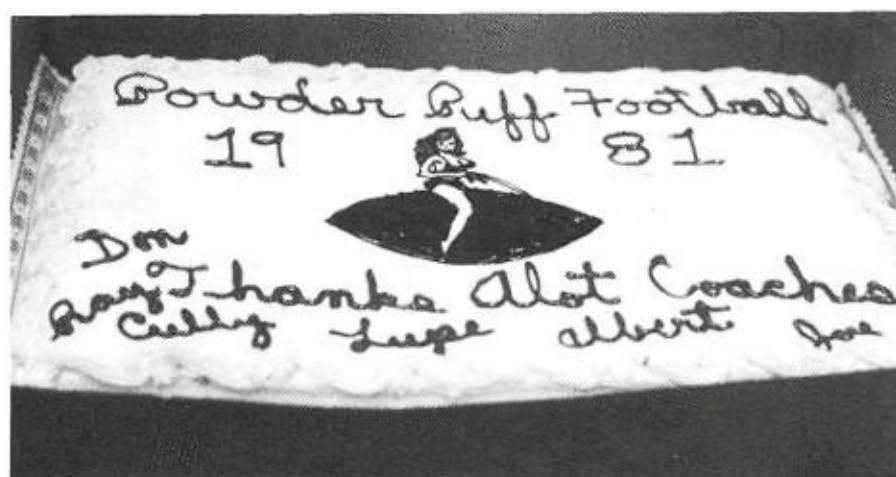 Powder Puff Football
19 81
Don
Ray Thanks Alot Coaches
Cubby Lupe Albert Joe